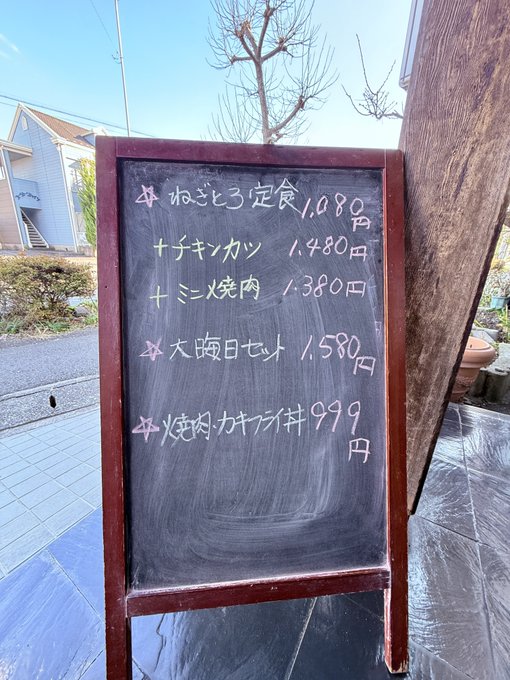 ☆ ねぎとろ定食 1,080円
+チキンカツ 1.480円
+ミニ焼肉 1.380円
☆ 大晦日セット 1,580円
☆ 焼肉・カキフライ丼 999円